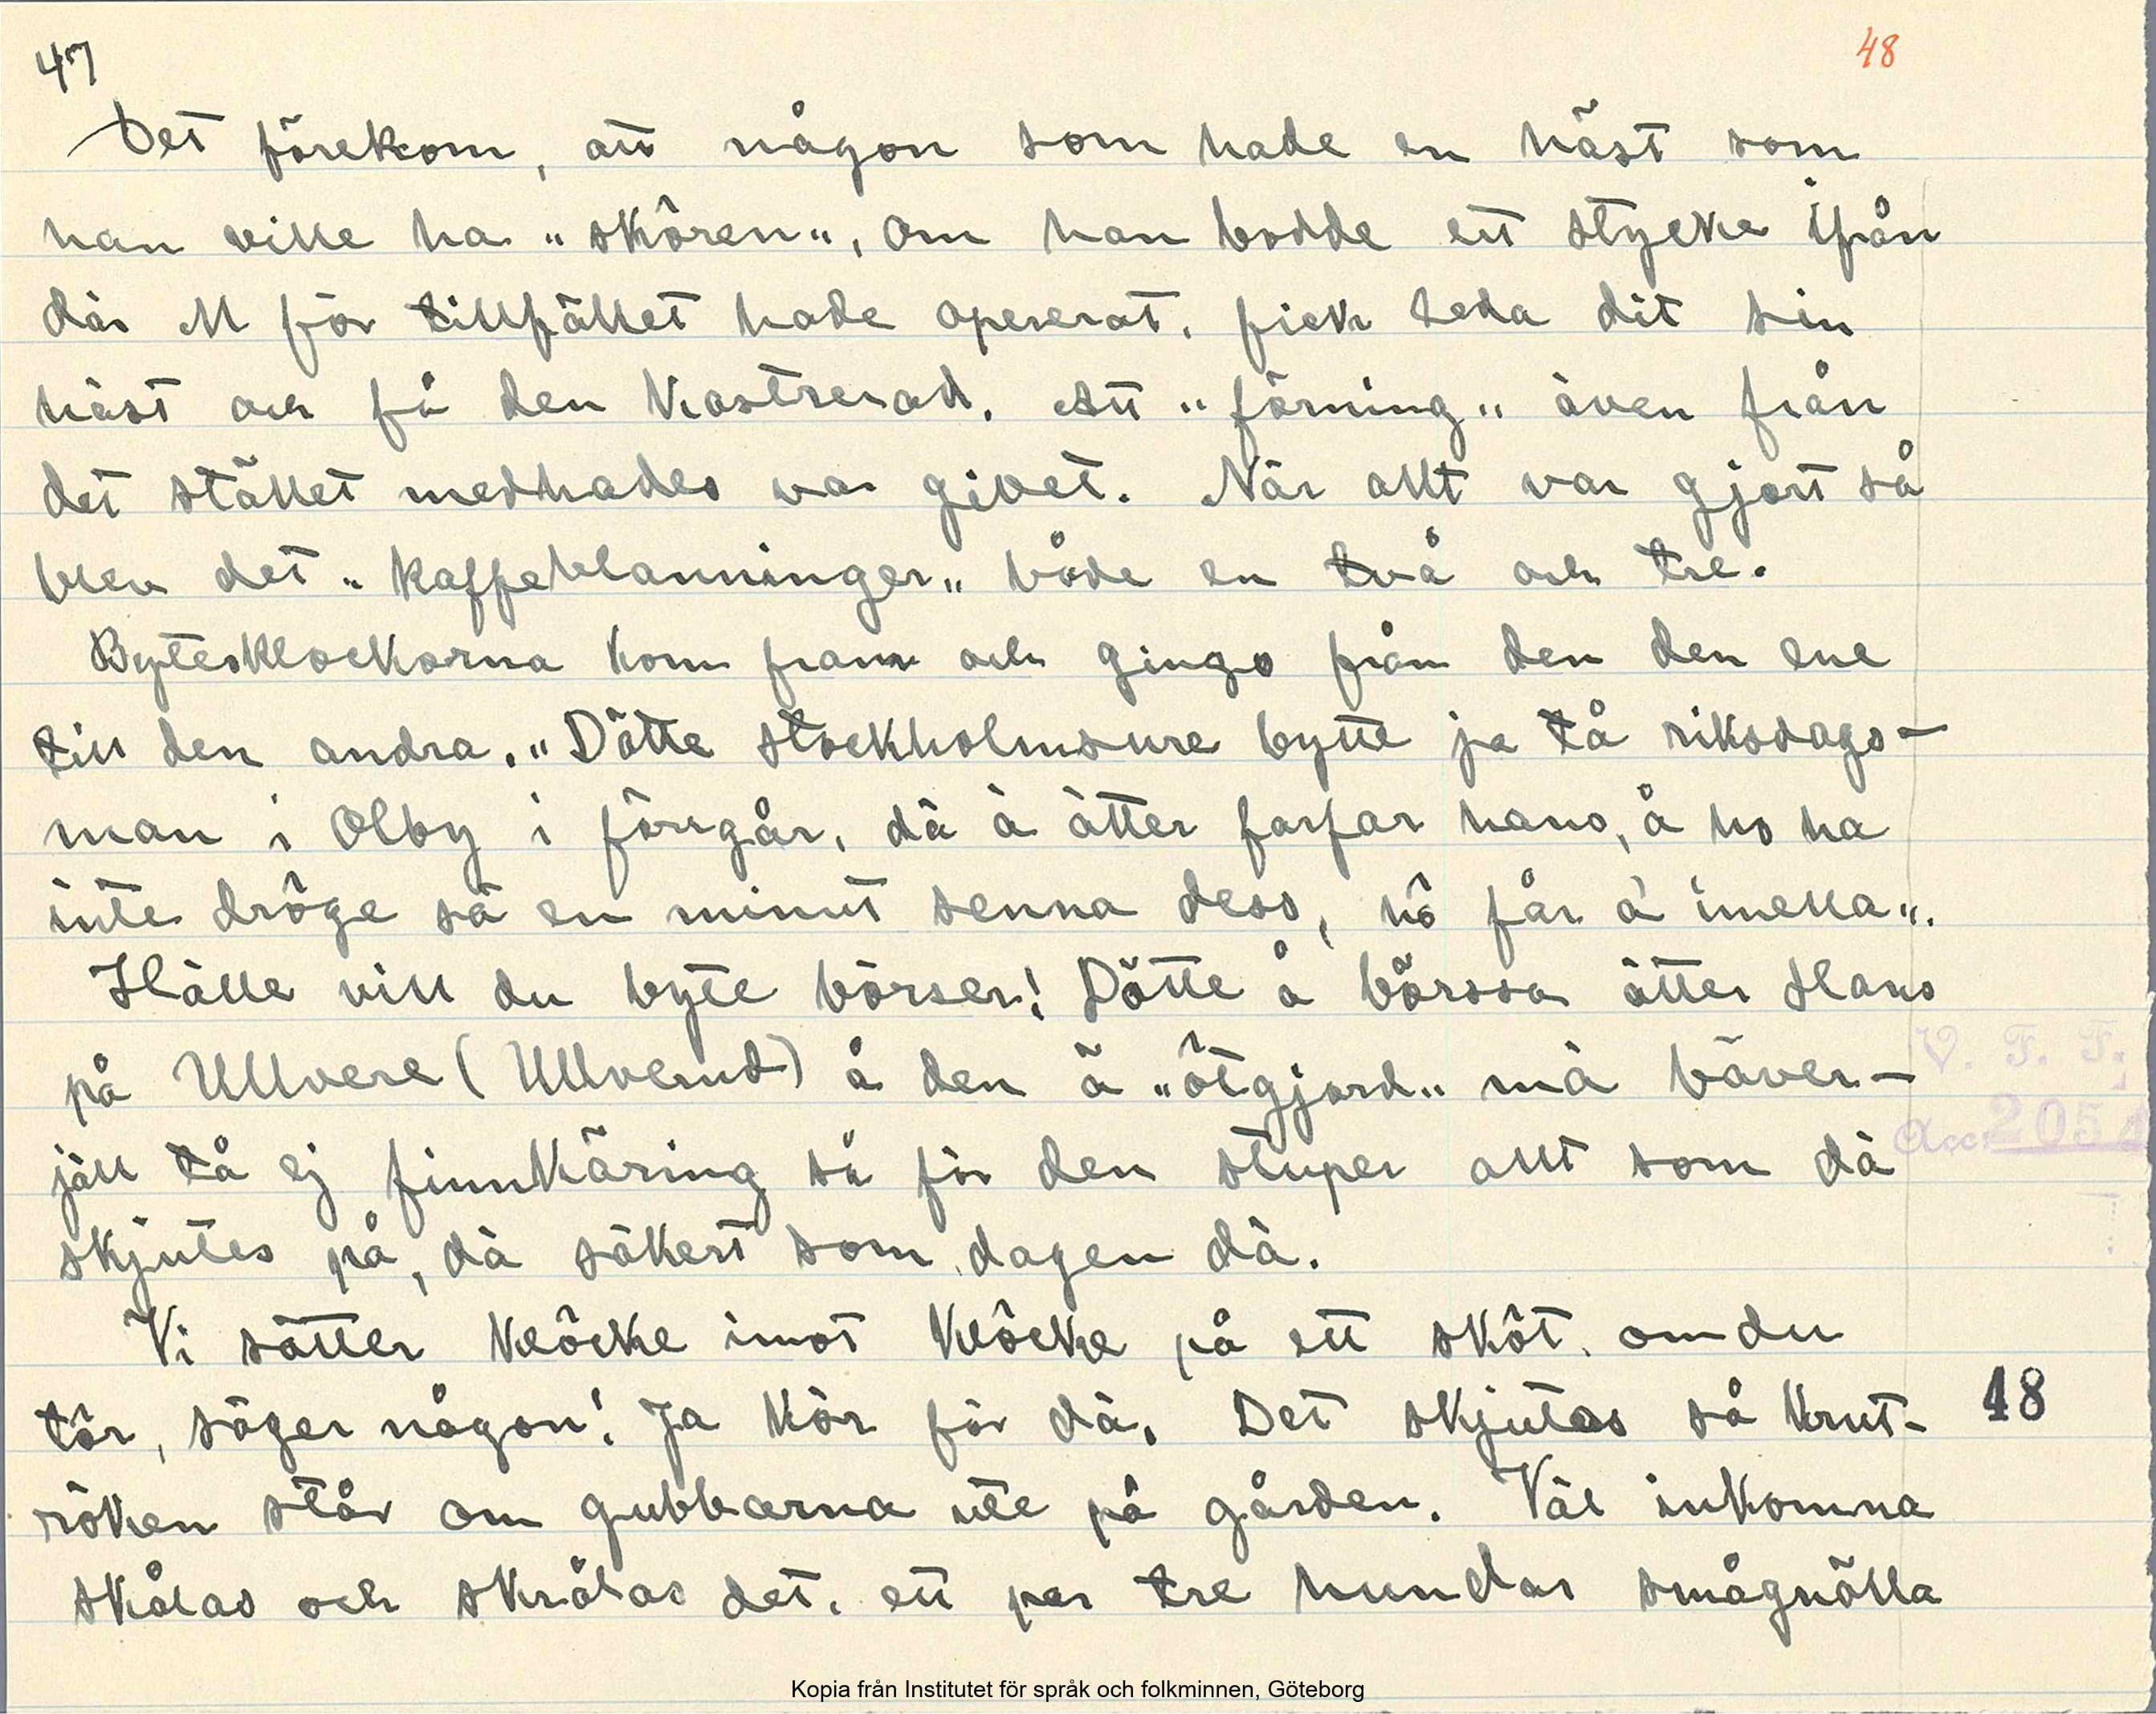 47
48
Det förekom, att någon som hade en häst som
han ville ha "skôren", om han bodde ett stycke ifrån
där M för tillfället hade opererat, fick leda dit sin
häst och få den kastrerad. Att "förning" även från
det stället medhades var givet. När allt var gjort så
blev det "kaffeblanninger" både en två och tre.
Bytesklockorna kom fram och gingo från den den ene
till den andra. "Dôtte stockholmsure bytte ja tå riksdags-
man i Olby i föregår, dä ä ätter farfar hans, å ho ha
inte dröge sä en minut senna dess, nô får ä imella".
Hälle vill du byte börser! Dôtte å börssa ätter Hans
på Ullvere (Ullverud) å den ä "ôtgjord" mä bäver-
jäll tå ej finnkäring så för den stuper allt som dä
skjutes på, dä säkert som dagen dä.
Vi sätter klôcke imot klôcke på ett skôt, om du
tôr, säger någon! Ja kör för dä. Det skjutes så krut-
röken står om gubbarna ute på gården. Väl inkomna
skålas och skrålas det, ett par tre hundar smågnälla
18
V. F. F.
Acc. 205
Kopia från Institutet för språk och folkminnen, Göteborg